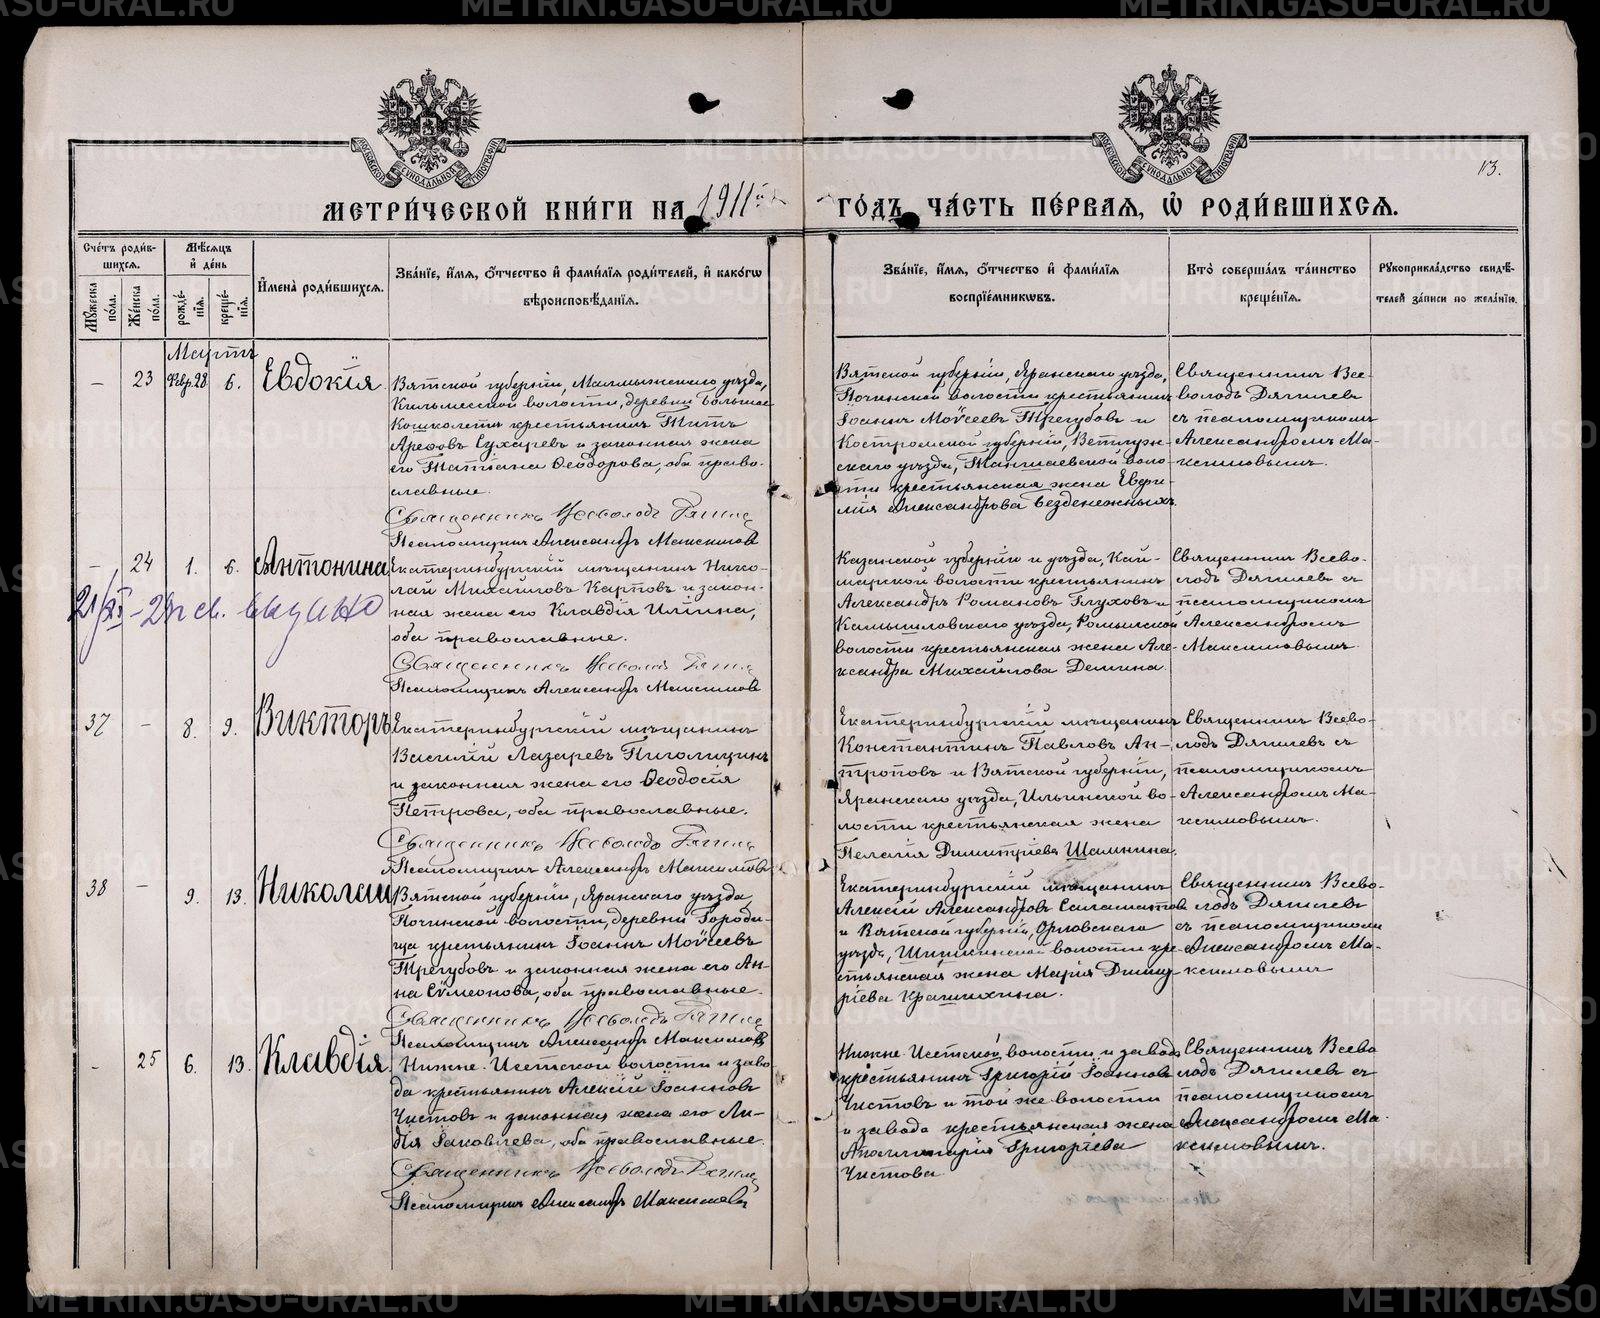 METRIKI.GASU-URAL.RU
113.
МЕТРИ́ЧЕСКОЙ КНИ́ГИ НА 1911й ГО́ДЪ ЧА́СТЬ ПЕ́РВАЯ, Ѡ РОДИ́ВШИХСЯ.
Сче́тъ роди́в-
шихся.
Мꙋ́жеска по́ла.
Же́нска по́ла.
Мѣ́сяцъ
и́ де́нь
рожде́-
нїя.
креще́-
нїя.
И҆мена̀ роди́вшихся.
Зва́нїе, и҆́мя, ѻ҆́тчество и҆ фами́лїя роди́телей, и҆ како́гѡ
вѣроисповѣ́данїя.
Зва́нїе, и҆́мя, ѻ҆́тчество и҆ фами́лїя
воспрїе́мниковъ.
Кто̀ соверша́лъ та́инство
креще́нїя.
Рꙋкоприкла́дство свидѣ́-
телей за́писи по жела́нїю.
Мартъ
– 23 Февр. 28 6. Евдокія
Вятской губерніи, Малмыжскаго уѣзда,
Кильмесской волости, деревни Большае
крестьянинъ Титъ
Сухаревъ и законная жена
его Татіана Ѳеодорова, оба право-
славные.
Священникъ Всеволодъ
Псаломщикъ Александръ Максимовъ
Вятской губерніи, Яранскаго уѣзда,
Починской волости крестьянинъ
Іоаннъ Моѵсеевъ Трегубовъ и
Костромской губерніи, Ветлуж-
скаго уѣзда, Тоншаевской воло-
сти крестьянская жена Евфи-
мія Александрова Безденежныхъ.
Священникъ Все-
володъ Дягилевъ
съ псаломщикомъ
Александромъ Ма-
ксимовымъ.
– 24 1. 6. Антонина
21/XI – 29 г св. выдано
Екатеринбургскій мѣщанинъ Нико-
лай Михайловъ Карповъ и закон-
ная жена его Клавдія Ильина,
оба православные.
Священникъ Всеволодъ
Псаломщикъ Александръ Максимовъ
Казанской губерніи и уѣзда, Кай-
марской волости крестьянинъ
Александръ Романовъ Глуховъ и
Камышловскаго уѣзда,
волости крестьянская жена Але-
ксандра Михайлова Демина.
Священникъ Всево-
лодъ Дягилевъ съ
псаломщикомъ
Александромъ
Максимовымъ.
37 – 8. 9. Викторъ
Екатеринбургскій мѣщанинъ
Василій Лазаревъ
и законная жена его Ѳеодосія
Петрова, оба православные.
Священникъ Всеволодъ
Псаломщикъ Александръ Максимовъ
Екатеринбургскій мѣщанинъ
Константинъ Павловъ Ан-
троповъ и Вятской губерніи,
Яранскаго уѣзда, Ильинской во-
лости крестьянская жена
Пелагія Димитріева Шамнина.
Священникъ Всево-
лодъ Дягилевъ съ
псаломщикомъ
Александромъ Ма-
ксимовымъ.
38 – 9. 13. Николай
Вятской губерніи, Яранскаго уѣзда,
Починской волости, деревни Городи-
ща крестьянинъ Іоаннъ Моѵсеевъ
Трегубовъ и законная жена его Ан-
на Сѵмеонова, оба православные.
Священникъ Всеволодъ
Псаломщикъ Александръ Максимовъ
Екатеринбургскій мѣщанинъ
Алексій Александровъ Саламатовъ
и Вятской губерніи, Орловскаго
уѣзда, волости кре-
стьянская жена Марія Димит-
ріева Крашихина.
Священникъ Всево-
лодъ Дягилевъ
съ псаломщикомъ
Александромъ Ма-
ксимовымъ
– 25 6. 13. Клавдія
Нижне-Исетской волости и заво-
да крестьянинъ Алексій Іоанновъ
Чистовъ и законная жена его Ли-
дія Іаковлева, оба православные.
Священникъ Всеволодъ
Псаломщикъ Александръ Максимовъ
Нижне-Исетской волости и завода
крестьянинъ Григорій Іоанновъ
Чистовъ и той же волости
и завода крестьянская жена
Аполлинарія Григоріева
Чистова.
Священникъ Всево
лодъ Дягилевъ съ
псаломщикомъ
Александромъ Ма-
ксимовымъ.